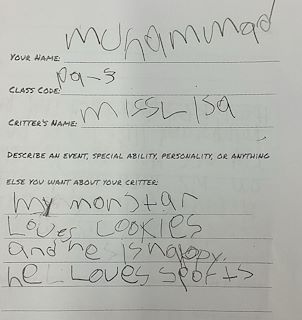 Your Name: muhammad
Class Code: pa-s
Critter's Name: miss Lisa
Describe an event, special ability, personality, or anything
else you want about your critter:
my monstar
Loves cookies
and he is
he Loves sports